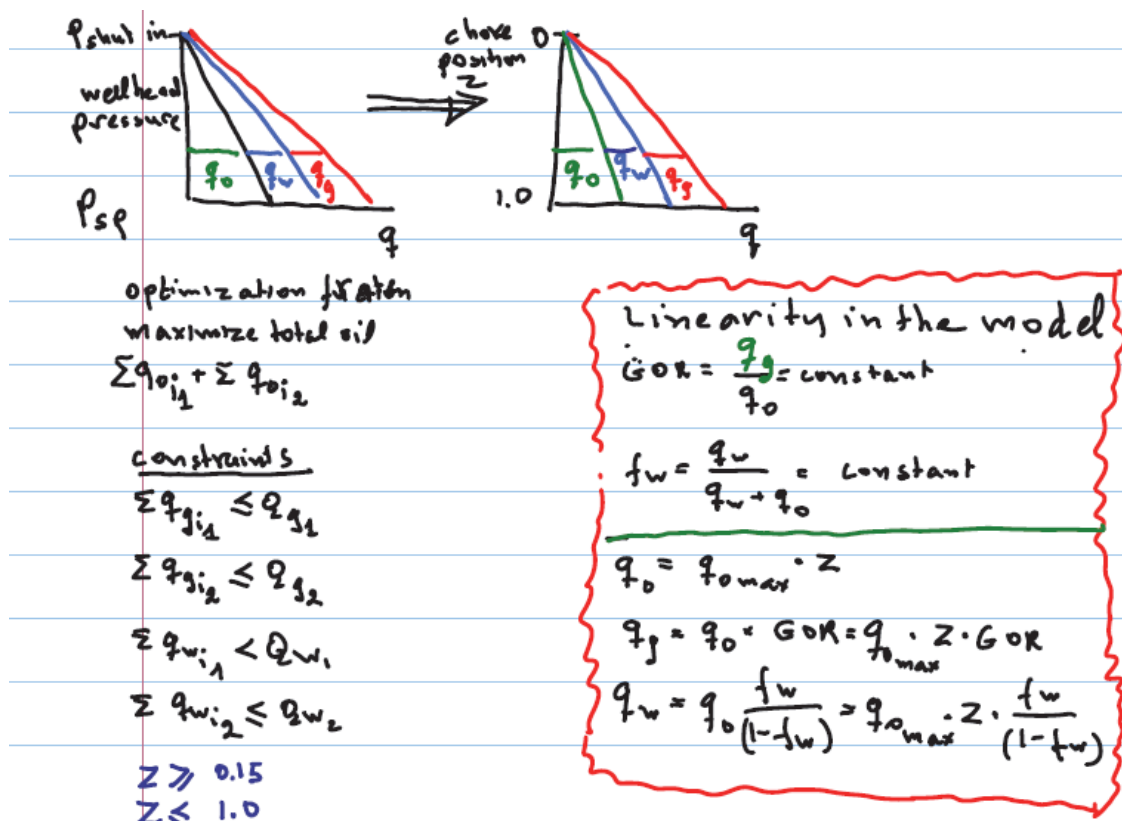 Pshut in
wellhead
pressure
Psp
qo qw qg
q
choke
position
z
0
1.0
qo qw qg
q
optimization function
maximize total oil
Σqoi1 + Σ qoi2
constraints
Σ qgi1 ≤ Qg1
Σ qgi2 ≤ Qg2
Σ qwi1 < Qw1
Σ qwi2 ≤ Qw2
z ≥ 0.15
z ≤ 1.0
Linearity in the model
GOR = qg/qo = constant
fw = qw/(qw + qo) = constant
qo = qomax · z
qg = qo × GOR = qomax · z · GOR
qw = qo fw/(1-fw) = qomax · z · fw/(1-fw)